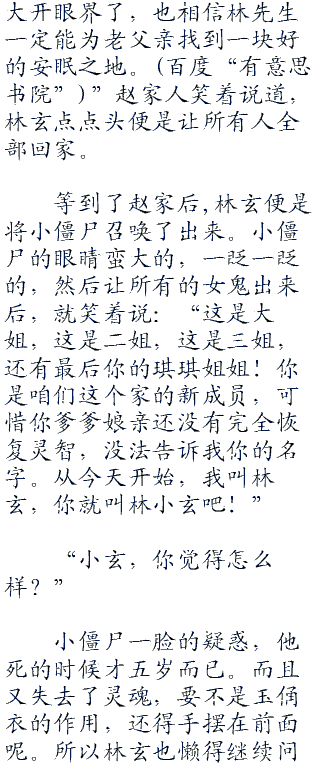 大开眼界了，也相信林先生
一定能为老父亲找到一块好
的安眠之地。(百度“有意思
书院”)”赵家人笑着说道，
林玄点点头便是让所有人全
部回家。
等到了赵家后,林玄便是
将小僵尸召唤了出来。小僵
尸的眼睛蛮大的，一眨一眨
的，然后让所有的女鬼出来
后，就笑着说：“这是大
姐，这是二姐，这是三姐，
还有最后你的琪琪姐姐！你
是咱们这个家的新成员，可
惜你爹爹娘亲还没有完全恢
复灵智，没法告诉我你的名
字。从今天开始，我叫林
玄，你就叫林小玄吧！”
“小玄，你觉得怎么
样？”
小僵尸一脸的疑惑，他
死的时候才五岁而已。而且
又失去了灵魂，要不是玉俑
衣的作用，还得手摆在前面
呢。所以林玄也懒得继续问